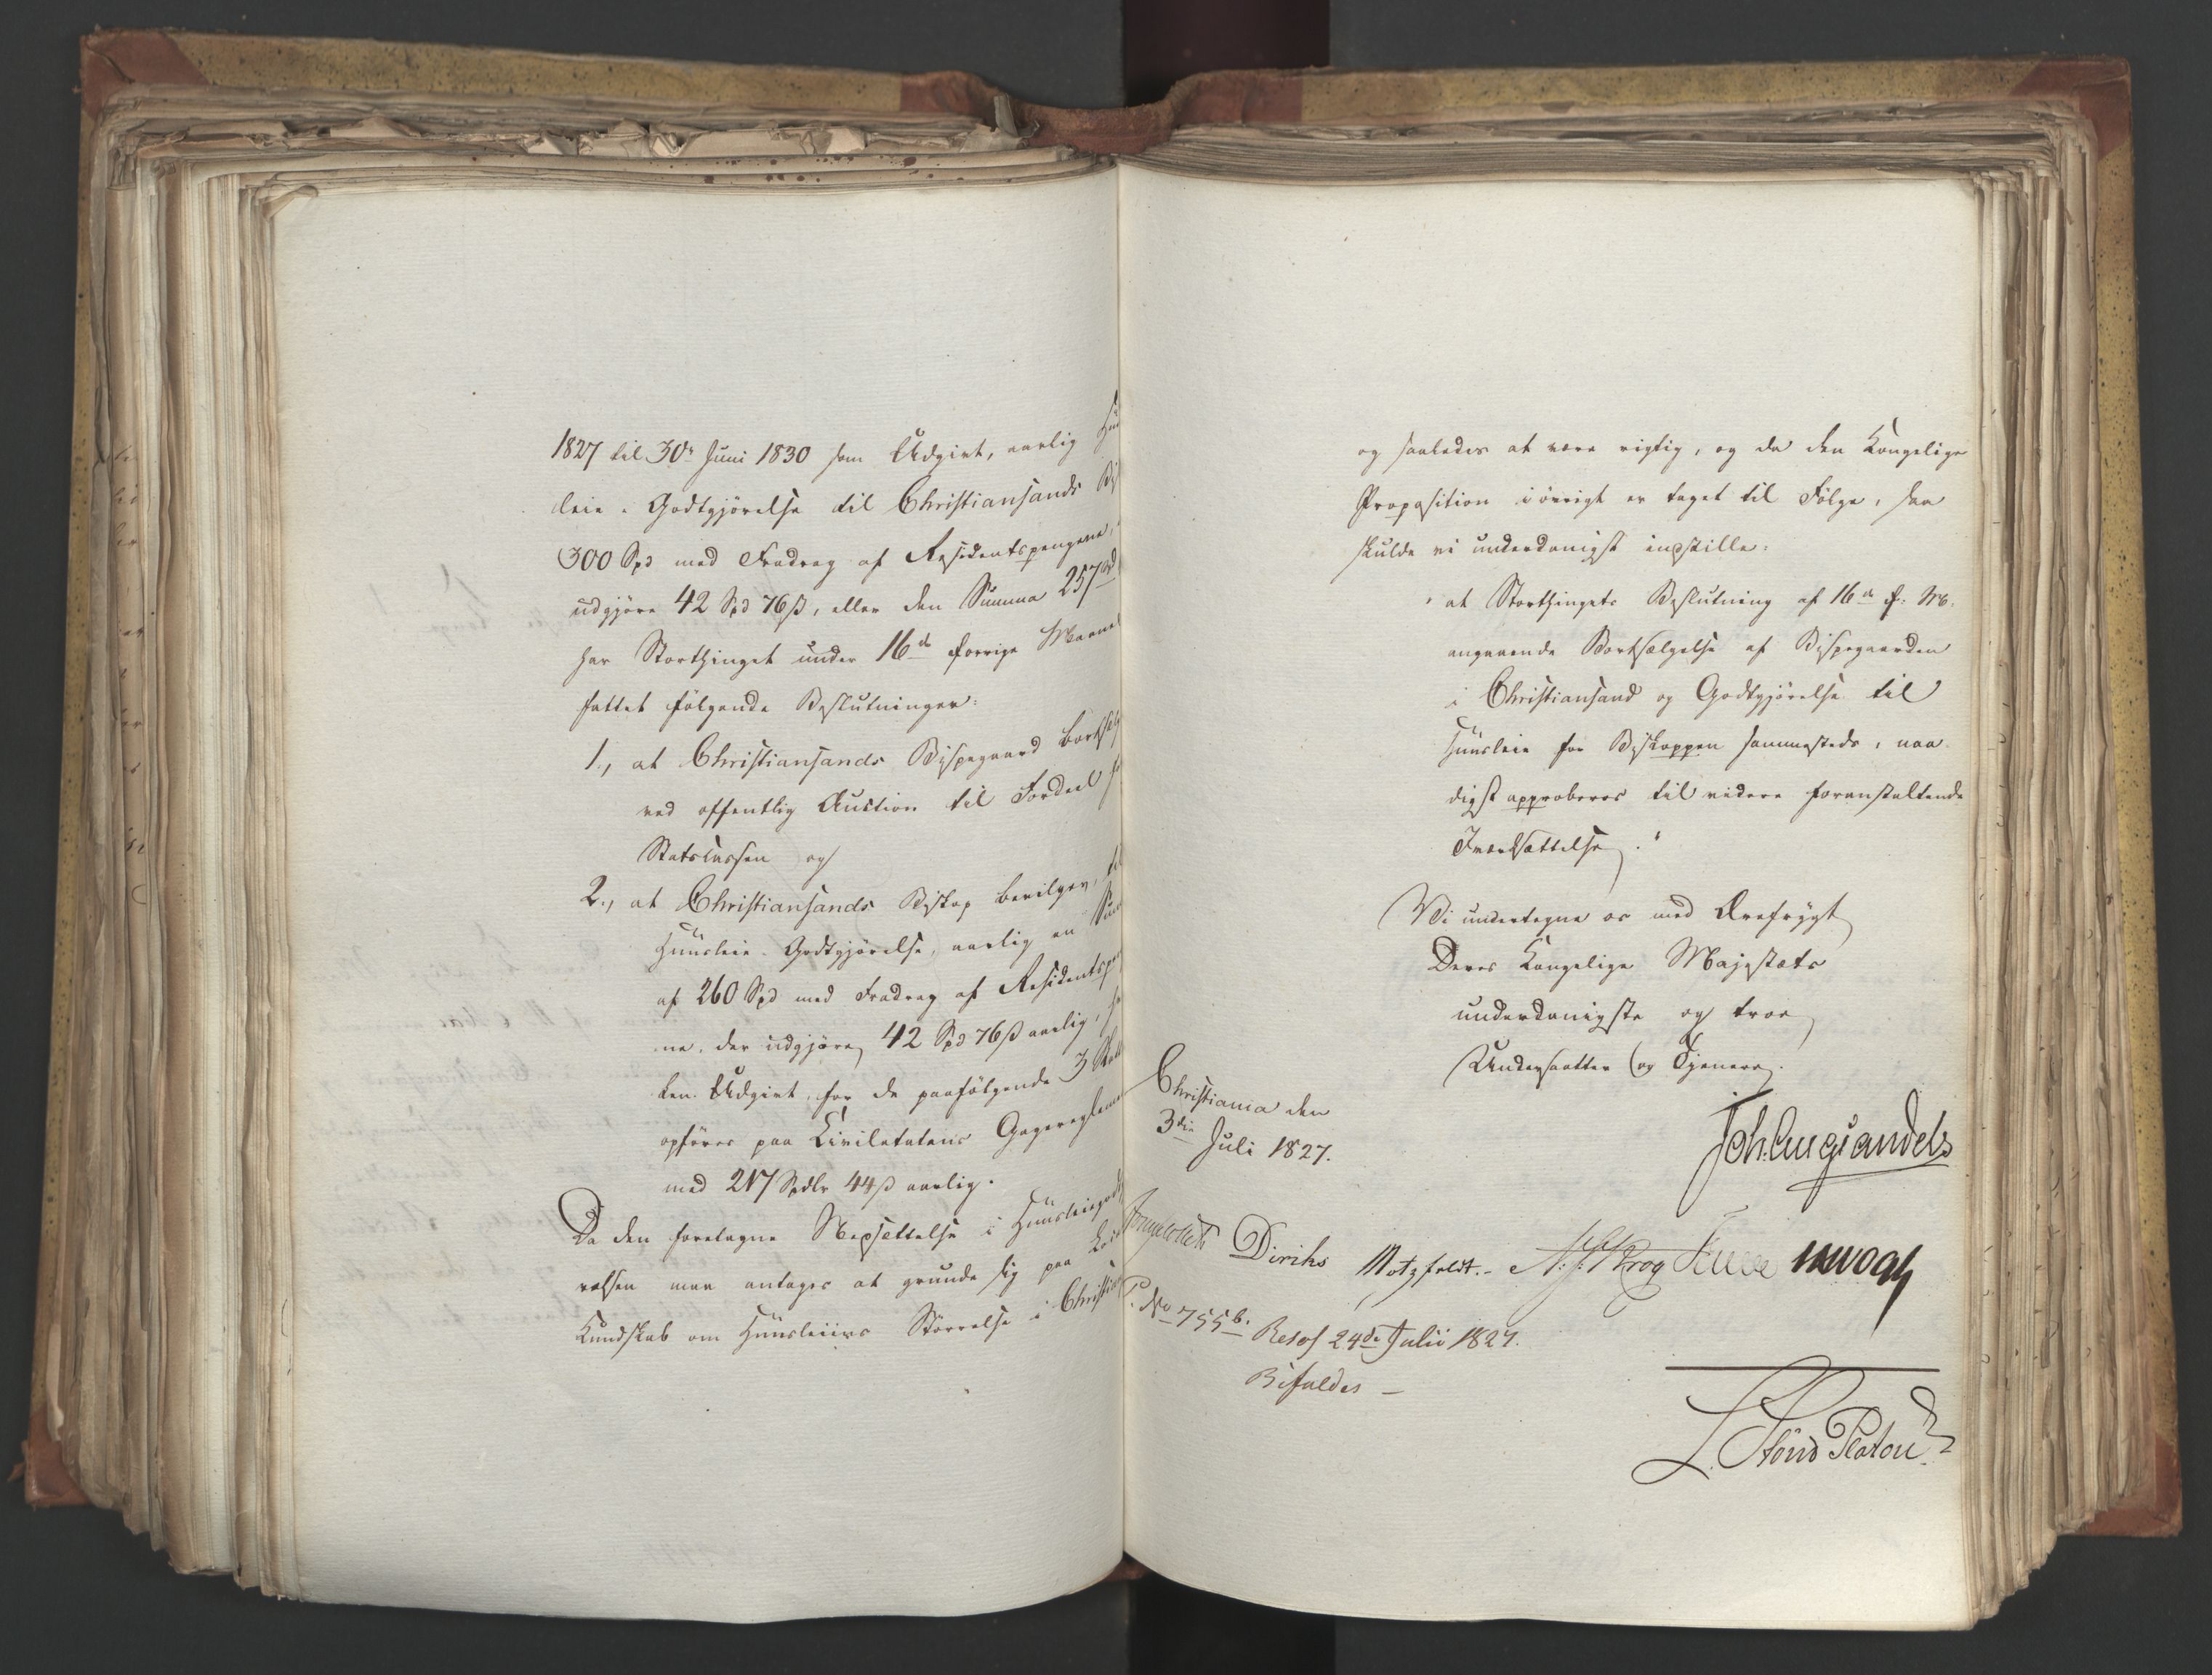 1827 til 30te Juni 1830 som Udgivt, aarlig Huus
leie-Godtgjörelse til Christiansands Bi
300 Spd med Fradrag af Residentspengene,
udgjöre 42 Spd 76 ß, eller den Summa 257 Spd
har Storthinget under 16de forrige Maaned
fattet følgende Beslutninger:
1., at Christiansands Bispegaard bortsælg
ved offentlig Auction til Fordeel for
Statscassen og
2., at Christiansands Biskop bevilges, til
Huusleie-Godtgjörelse, aarlig en Sum
af 260 Spd med Fradrag af Residentspen
ne, der udgjöre, 42 Spd 76 ß aarlig,
ken Udgivt for de paafölgende 3
opföres paa Civiletatens Gagereglem
med 217 Spdlr 44 ß aarlig.
Da den foretagne Nedsættelse i Huusleiegodtgj
relsen maa antages at grunde sig paa
Kundskab om Huusleiens Störrelse i Christian
og saaledes at være rigtig, og da den Kongelige
Proposition iövrigt er taget til Fölge, saa
skulde vi underdanigst indstille:
" at Storthingets Beslutning af 16de f: M:
angaaende Bortsælgelse af Bispegaarden
i Christiansand og Godtgjörelse til
Huusleie for Biskoppen sammesteds, naa-
digst approberes til videre foranstaltende
Iværksættelse."
Vi undertegne os med Ærefrygt
Deres Kongelige Majestæts
underdanigste og troe
Undersaatter og Tjenere.
Christiania den
3die Juli 1827.
Joh. Aug. Sandels
Diriks Motzfeldt.- Krog W Vogh
P. No 755b. Resol 24de Julii 1827.
Bifaldes -
L. Stoud Platou